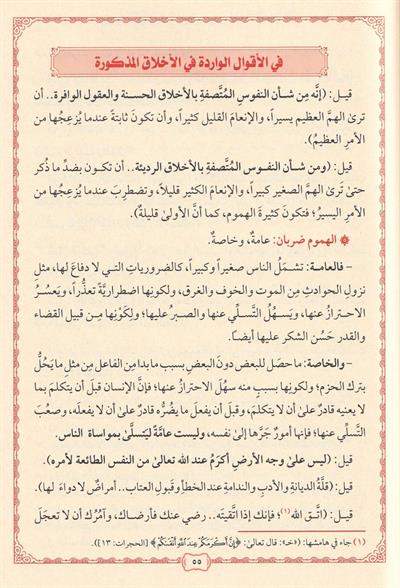 في الأقوال الواردة في الأخلاق المذكورة
قيل: (إنَّه مِن شـأن النفوس المُتَّصفةِ بالأخلاق الحسنة والعقول الوافرة.. أن
ترىٰ الهمَّ العظيم يسيراً، والإنعامَ القليل كثيراً، وأن تكونَ ثابتةً عندما يُزعِجُها من
الأمرِ العظيمُ).
قيل: (ومن شـأن النفـوس المُتَّصفةِ بالأخلاق الرديئة.. أن تكـون بضدِّ ما ذُكر
حتىٰ تَرىٰ الهمَّ الصغير كبيراً، والإنعامَ الكثير قليلاً، وتضطربَ عندما يُزعِجُها من
الأمرِ اليسيرُ؛ فتكونَ كثيرةَ الهموم، كما أنَّ الأولىٰ قليلةٌ).
الهموم ضربان: عامةٌ، وخاصةٌ.
- فالعامة: تشـمَلُ الناس صغيراً وكبيراً، كالضرورياتِ التـي لا دفاعَ لها، مثلِ
نزولِ الحوادثِ مـن الموت والخوف والغرق، ولكونِها اضطراريَّةً تعذُّراً، ويَعسُـرُ
الاحترازُ عنها، ويَسـهُلُ التَّسـلِّي عنها والصبـرُ عليها؛ ولِكَوْنِها مِـن قبيل القضاء
والقدر حَسُن الشكر عليها أيضـاً.
- والخاصة: ما حصل للبعض دونَ البعضِ بسبب ما بدا من الفاعل مِن مثلِ ما يَحُلُّ
بتركِ الحزم؛ ولكونِها بسببٍ منه سهُلَ الاحترازُ عنها؛ فإنَّ الإنسان قبلَ أن يتكلمَ بما
لا يعنيه قادرٌ علىٰ أن لا يتكلمَ، وقبلَ أن يفعلَ ما يضُرُّه قادرٌ علىٰ أن لا يفعلَه، وصعُبَ
التَّسلِّي عنها؛ فإنها أمورٌ جَرَّها إلىٰ نفسه، وليست عامَّةً ليَتسلَّىٰ بمواساة الناس.
قيل: (ليس علىٰ وجه الأرضِ أكرَمُ عند الله تعالىٰ من النفس الطائعة لأمره).
قيل: (قلَّةُ الديانةِ والأدبِ والندامةِ عند الخطأ وقَبولِ العتاب.. أمراضٌ لا دواءَ لها).
قيـل: (اتَّـقِ الله(١)؛ فإنك إذا اتَّقيتَه.. رضي عنك فأرضـاك، وآمُرُك أن لا تعجَلَ
(١) جاء في هامشها: (فخ: قال تعالىٰ: ﴿إِنَّ أَكْرَمَكُمْ عِندَ اللَّهِ أَتْقَىٰكُمْ﴾ [الحجرات: ١٣]).
٥٥